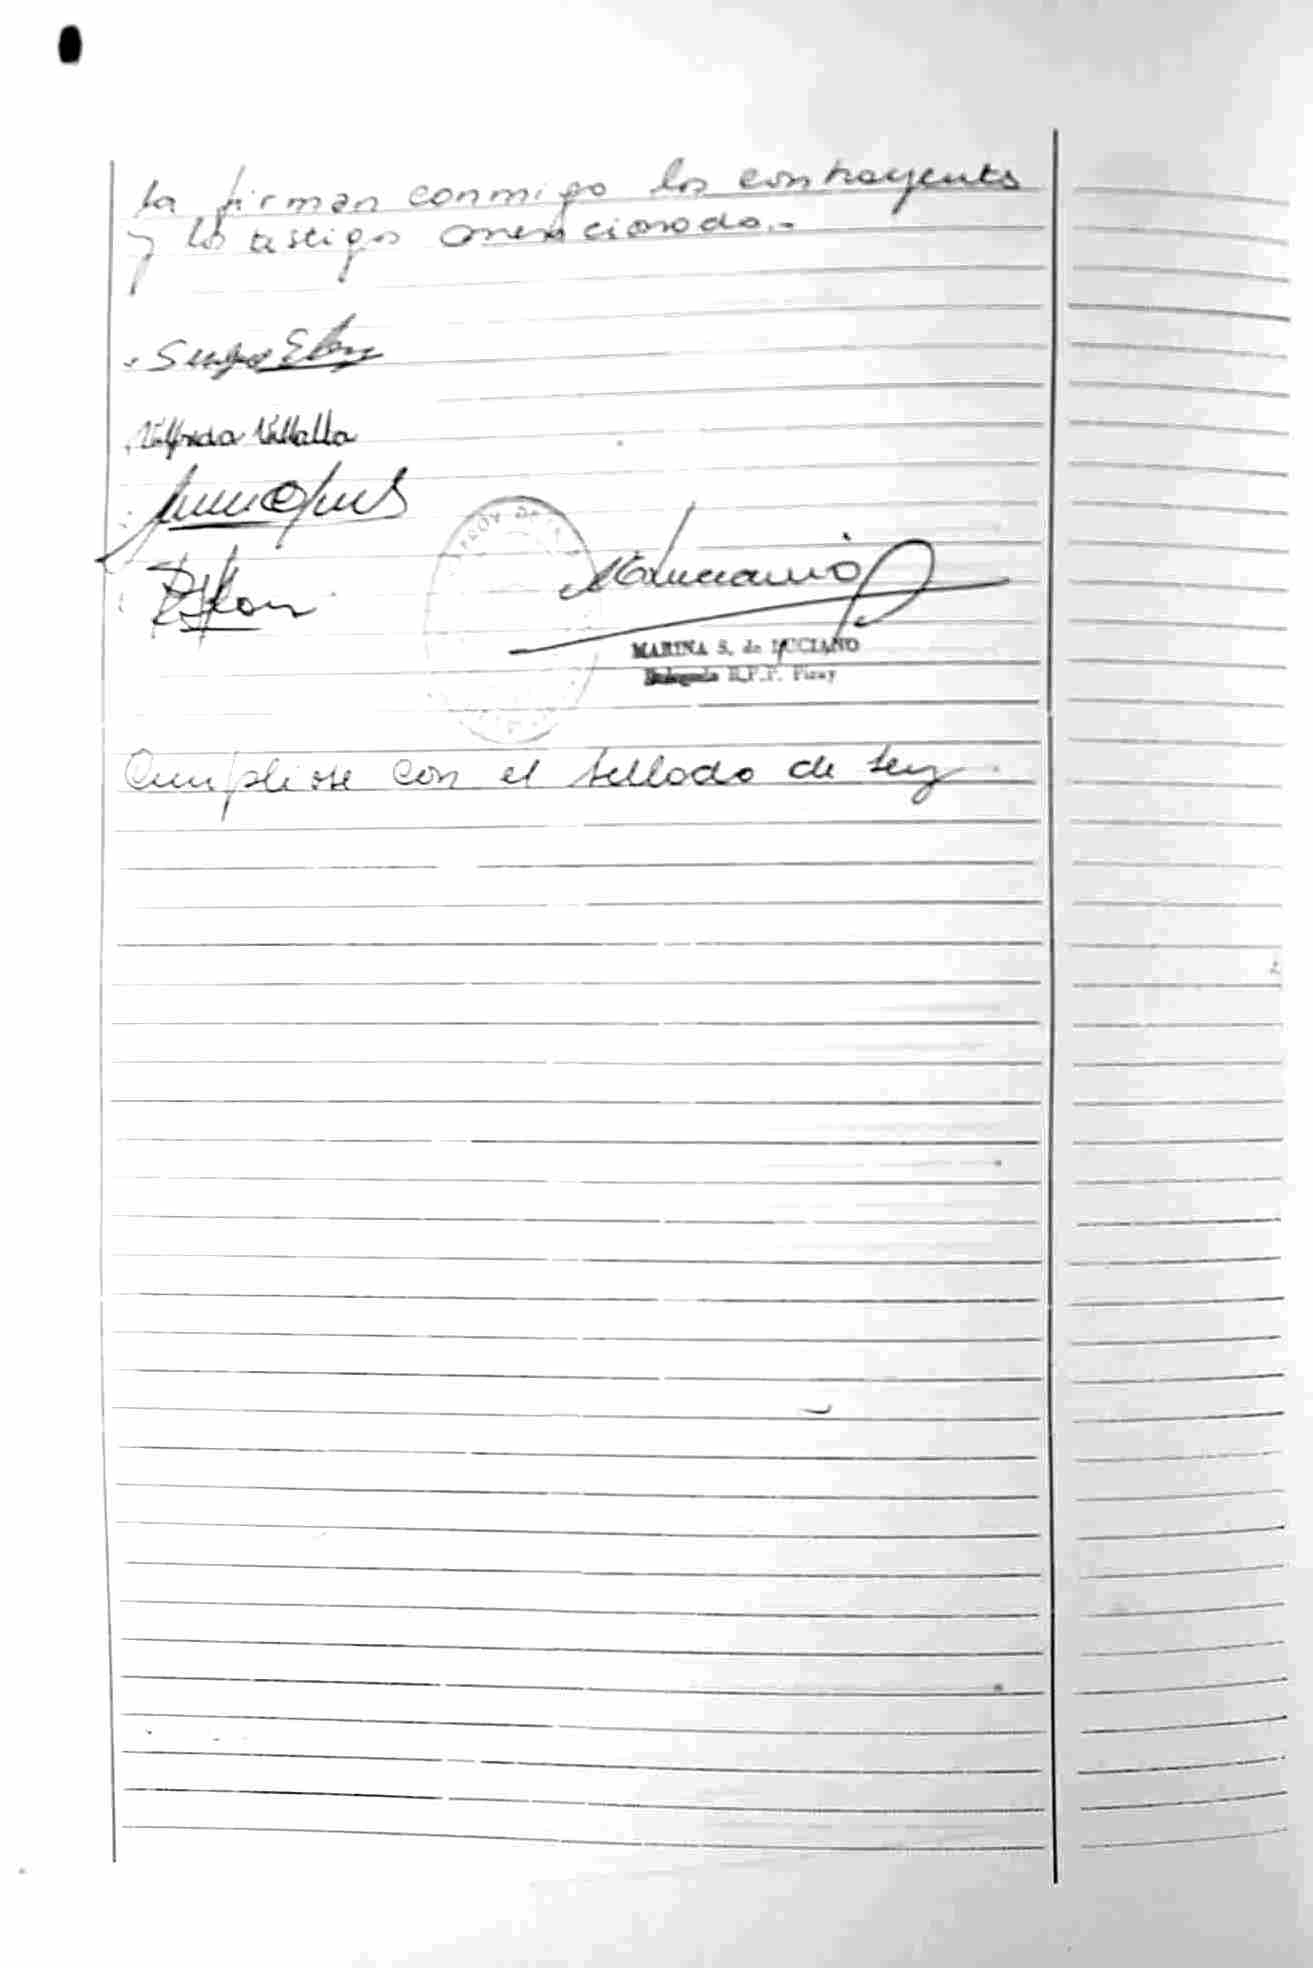 la firman conmigo los contrayentes
y los testigos mencionados.-
Sergio
Wilfreda Villalla
MARINA S. de LUCIANO
Delegada R.P.P. Piray
Cumpliose con el sellado de ley